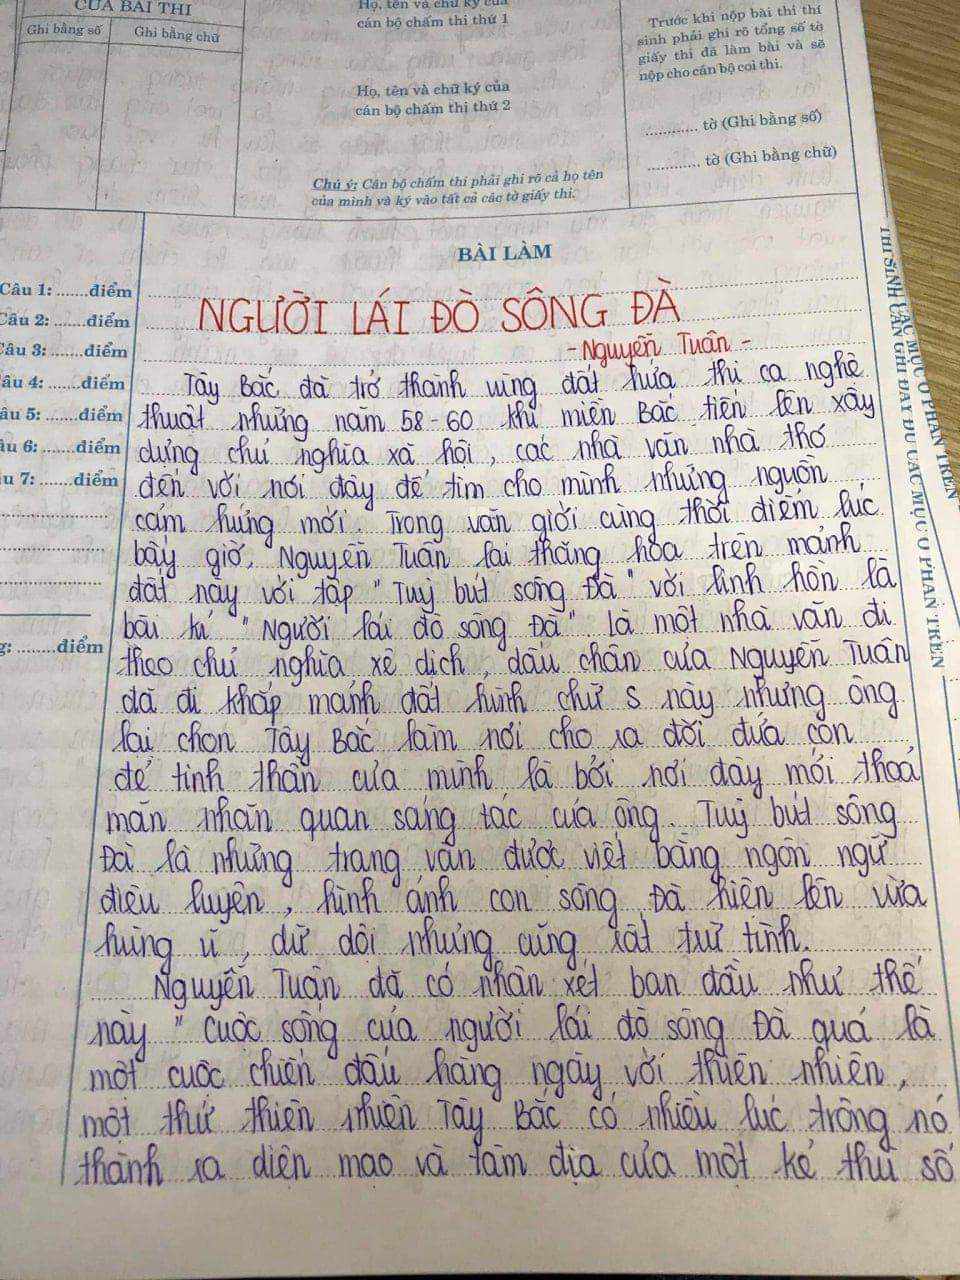 CỦA BÀI THI
Ghi bằng số
Ghi bằng chữ
Họ, tên và chữ ký của
cán bộ chấm thi thứ 1
Họ, tên và chữ ký của
cán bộ chấm thi thứ 2
Chú ý: Cán bộ chấm thi phải ghi rõ cả họ tên
của mình và ký vào tất cả các tờ giấy thi.
Trước khi nộp bài thi thí
sinh phải ghi rõ tổng số tờ
giấy thi đã làm bài và sẽ
nộp cho cán bộ coi thi.
............ tờ (Ghi bằng số)
............ tờ (Ghi bằng chữ)
BÀI LÀM
Câu 1: ......điểm
Câu 2: ......điểm
Câu 3: ......điểm
Câu 4: ......điểm
Câu 5: ......điểm
Câu 6: ......điểm
Câu 7: ......điểm
g: ........điểm
NGƯỜI LÁI ĐÒ SÔNG ĐÀ
- Nguyễn Tuân -
Tây Bắc đã trở thành vùng đất hứa thi ca nghệ
thuật những năm 58-60 khi miền Bắc tiến lên xây
dựng chủ nghĩa xã hội, các nhà văn nhà thơ
đến với nơi đây để tìm cho mình những nguồn
cảm hứng mới. Trong văn giới cùng thời điểm lúc
bấy giờ, Nguyễn Tuân lại thăng hoa trên mảnh
đất này với tập "Tuỳ bút sông Đà" với linh hồn là
bài kí "Người lái đò sông Đà". Là một nhà văn đi
theo chủ nghĩa xê dịch, dấu chân của Nguyễn Tuân
đã đi khắp mảnh đất hình chữ S này nhưng ông
lại chọn Tây Bắc làm nơi cho ra đời đứa con
đẻ tinh thần của mình là bởi nơi đây mới thoả
mãn nhãn quan sáng tác của ông. Tuỳ bút sông
Đà là những trang văn được viết bằng ngôn ngữ
điêu luyện, hình ảnh con sông Đà hiện lên vừa
hùng vĩ, dữ dội nhưng cũng rất trữ tình.
Nguyễn Tuân đã có nhận xét ban đầu như thế
này "Cuộc sống của người lái đò sông Đà quả là
một cuộc chiến đấu hằng ngày với thiên nhiên,
một thứ thiên nhiên Tây Bắc có nhiều lúc trông nó
thành ra diện mạo và tâm địa của một kẻ thù số
THÍ SINH CẦN GHI ĐẦY ĐỦ CÁC MỤC Ở PHẦN TRÊN